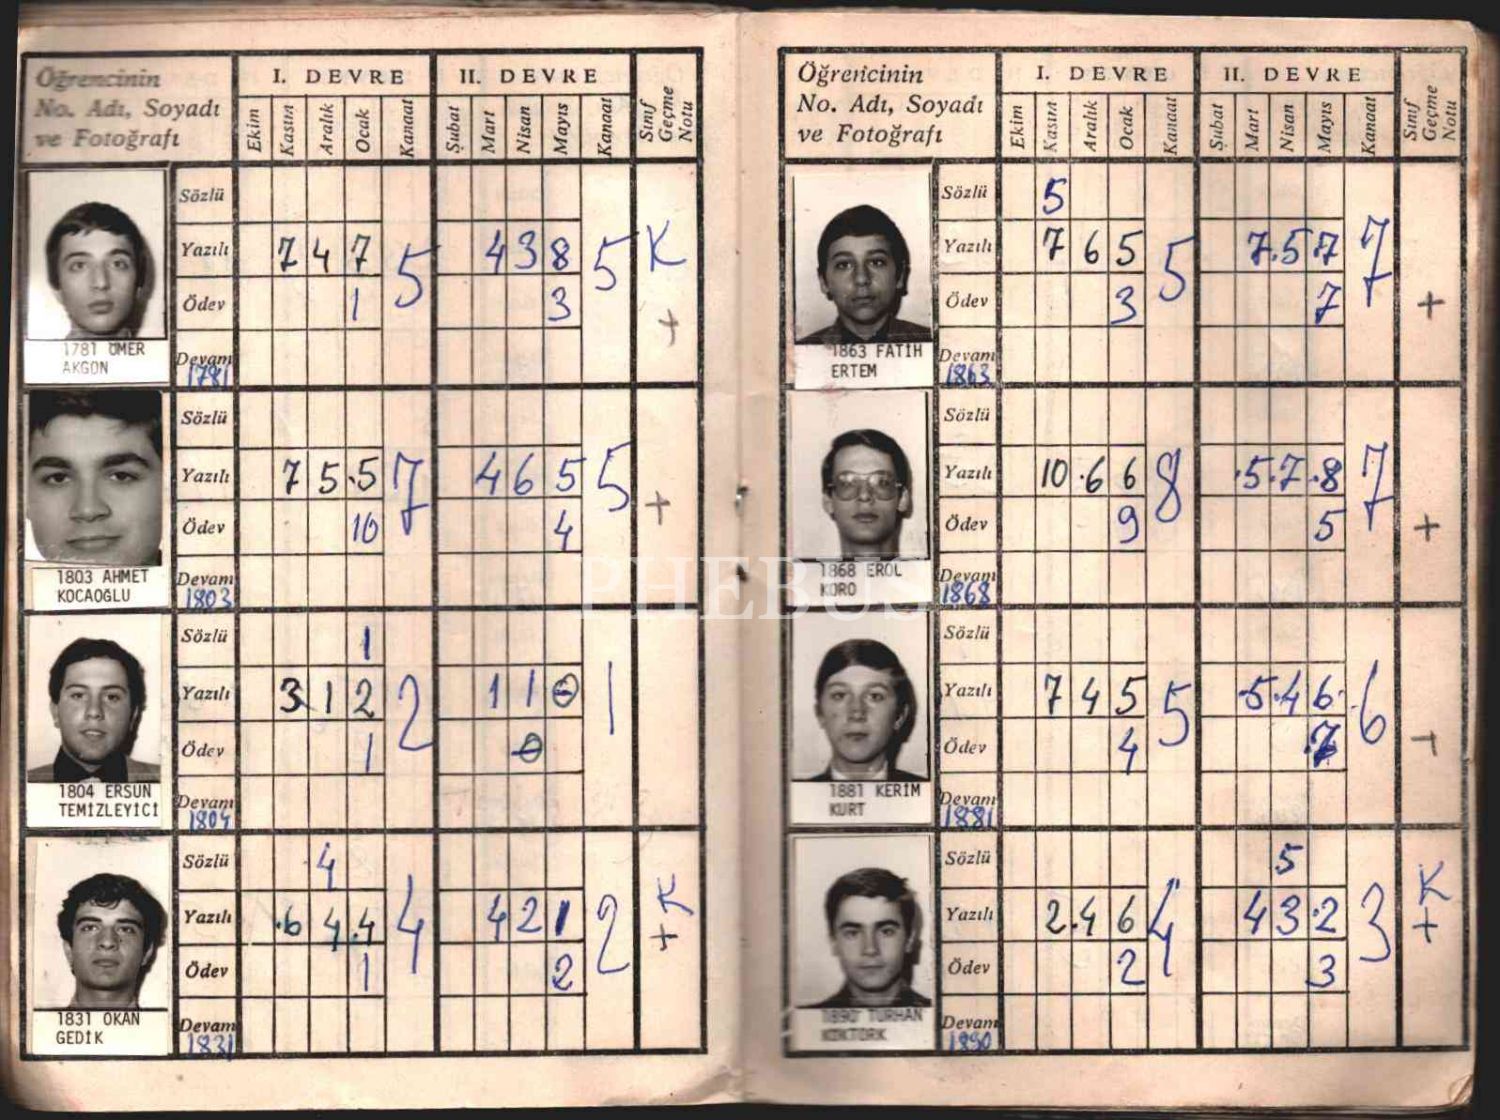 Öğrencinin
No. Adı, Soyadı
ve Fotoğrafı
I. DEVRE
II. DEVRE
Ekim Kasın Aralık Ocak Kanaat
Şubat Mart Nisan Mayıs Kanaat
Sınıf Geçme Notu
Sözlü
Yazılı 7 4 7 5 4 3 8 5 K
Ödev 1 3 +
Devam
1781
1781 ÖMER
AKGÜN
Sözlü
Yazılı 7 5.5 7 4 6 5 5
Ödev 10 4 +
Devam
1803
1803 AHMET
KOCAOĞLU
Sözlü 1
Yazılı 3 1 2 2 1 1 0 1
Ödev 1 0
Devam
1804
1804 ERSUN
TEMİZLEYİCİ
Sözlü 4 K
Yazılı .6 4.4 4 4 2 1 2 +
Ödev 1 2
Devam
1831
1831 OKAN
GEDİK
Öğrencinin
No. Adı, Soyadı
ve Fotoğrafı
I. DEVRE
II. DEVRE
Ekim Kasın Aralık Ocak Kanaat
Şubat Mart Nisan Mayıs Kanaat
Sınıf Geçme Notu
Sözlü 5
Yazılı 7 6 5 5 7.5 7 7
Ödev 3 7 +
Devam
1863
1863 FATİH
ERTEM
Sözlü
Yazılı 10.6 6 8 .5.7.8 7
Ödev 9 5 +
Devam
1868
1868 EROL
KORO
Sözlü
Yazılı 7 4 5 5 .5.4 6. 6
Ödev 4 .7 +
Devam
1881
1881 KERİM
KURT
Sözlü 5 K
Yazılı 2.4 6 4 4 3.2 3 +
Ödev 2 3
Devam
1890
1890 TURHAN
KÖKTÜRK
PHEBUS